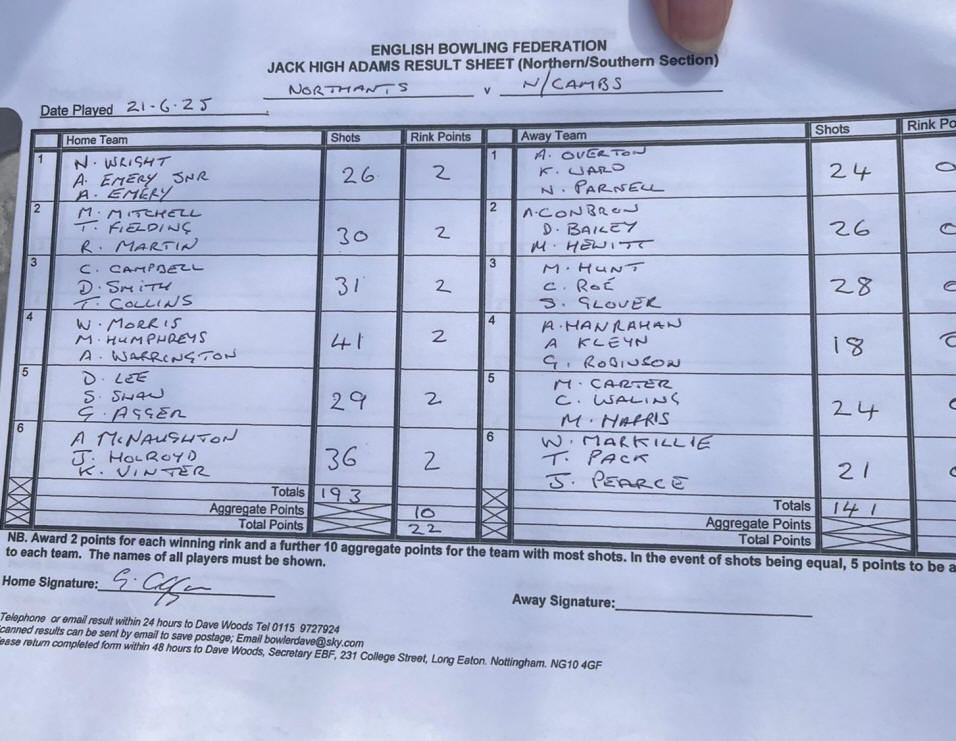 ENGLISH BOWLING FEDERATION
JACK HIGH ADAMS RESULT SHEET (Northern/Southern Section)
NORTHANTS v N/CAMBS
Date Played 21-6-25
Home Team Shots Rink Points Away Team Shots Rink Po
1 N. WRIGHT 26 2 1 A. OVERTON 24 0
A. EMERY JNR K. WARD
A. EMERY N. PARNELL
2 M. MITCHELL 30 2 2 A. CONBRON 26
T. FIELDING D. BAILEY
R. MARTIN M. HEWITT
3 C. CAMPBELL 31 2 3 M. HUNT 28
D. SMITH C. ROE
T. COLLINS S. GLOVER
4 W. MORRIS 41 2 4 A. HANRAHAN 18
M. HUMPHREYS A KLEYN
A. WARRINGTON G. ROBINSON
5 D. LEE 29 2 5 M. CARTER 24
S. SHAW C. WALING
G. AGGER M. HARRIS
6 A MCNAUGHTON 36 2 6 W. MARKILLIE 21
J. HOLROYD T. PACK
K. VINTER J. PEARCE
Totals 193 Totals 141
Aggregate Points 10 Aggregate Points
Total Points 22 Total Points
NB. Award 2 points for each winning rink and a further 10 aggregate points for the team with most shots. In the event of shots being equal, 5 points to be a
to each team. The names of all players must be shown.
Home Signature: Away Signature:
Telephone or email result within 24 hours to Dave Woods Tel 0115 9727924
canned results can be sent by email to save postage; Email bowlerdave@sky.com
ease return completed form within 48 hours to Dave Woods, Secretary EBF, 231 College Street, Long Eaton. Nottingham. NG10 4GF